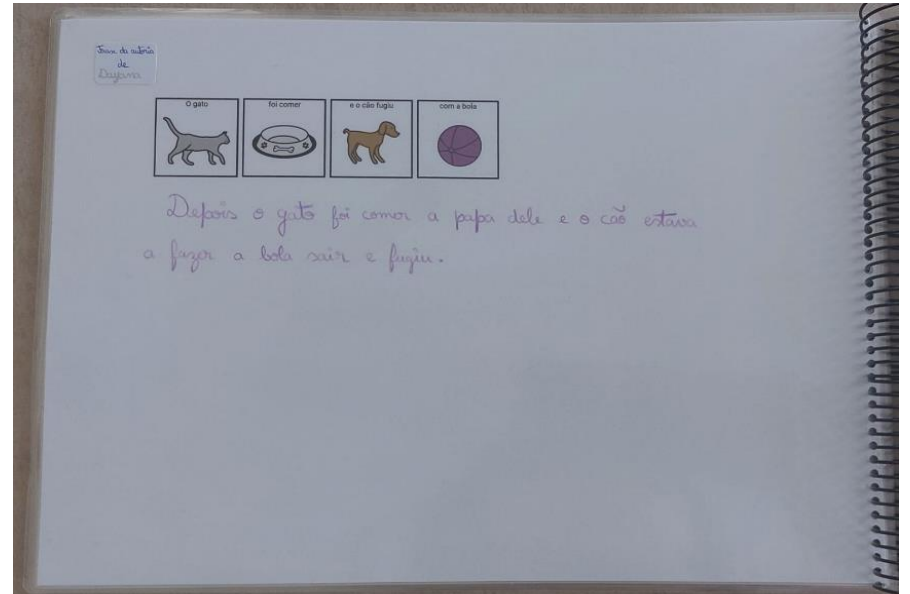 Frase da autoria
de
Dayana
O gato
foi comer
e o cão fugiu
com a bola
Depois o gato foi comer a papa dele e o cão estava
a fazer a bola sair e fugiu.